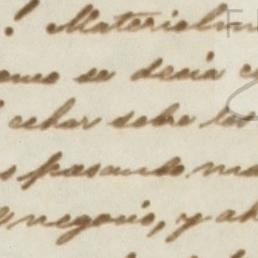 ! Materialm
se decia
echar sobre los
s pasando ma
negocio, y ah